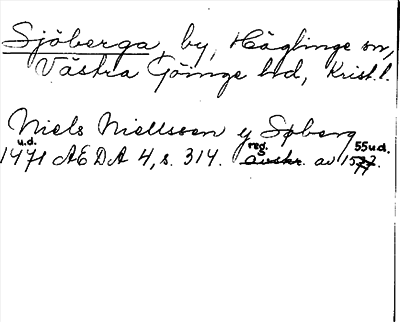 Sjöberga, by, Häglinge sn,
Västra Göinge hd, Krist.l.
Niels Niellsson y Søberg
u.d. reg. 55 u.d.
1471 AEDA 4, s. 314. avskr. av 1577.